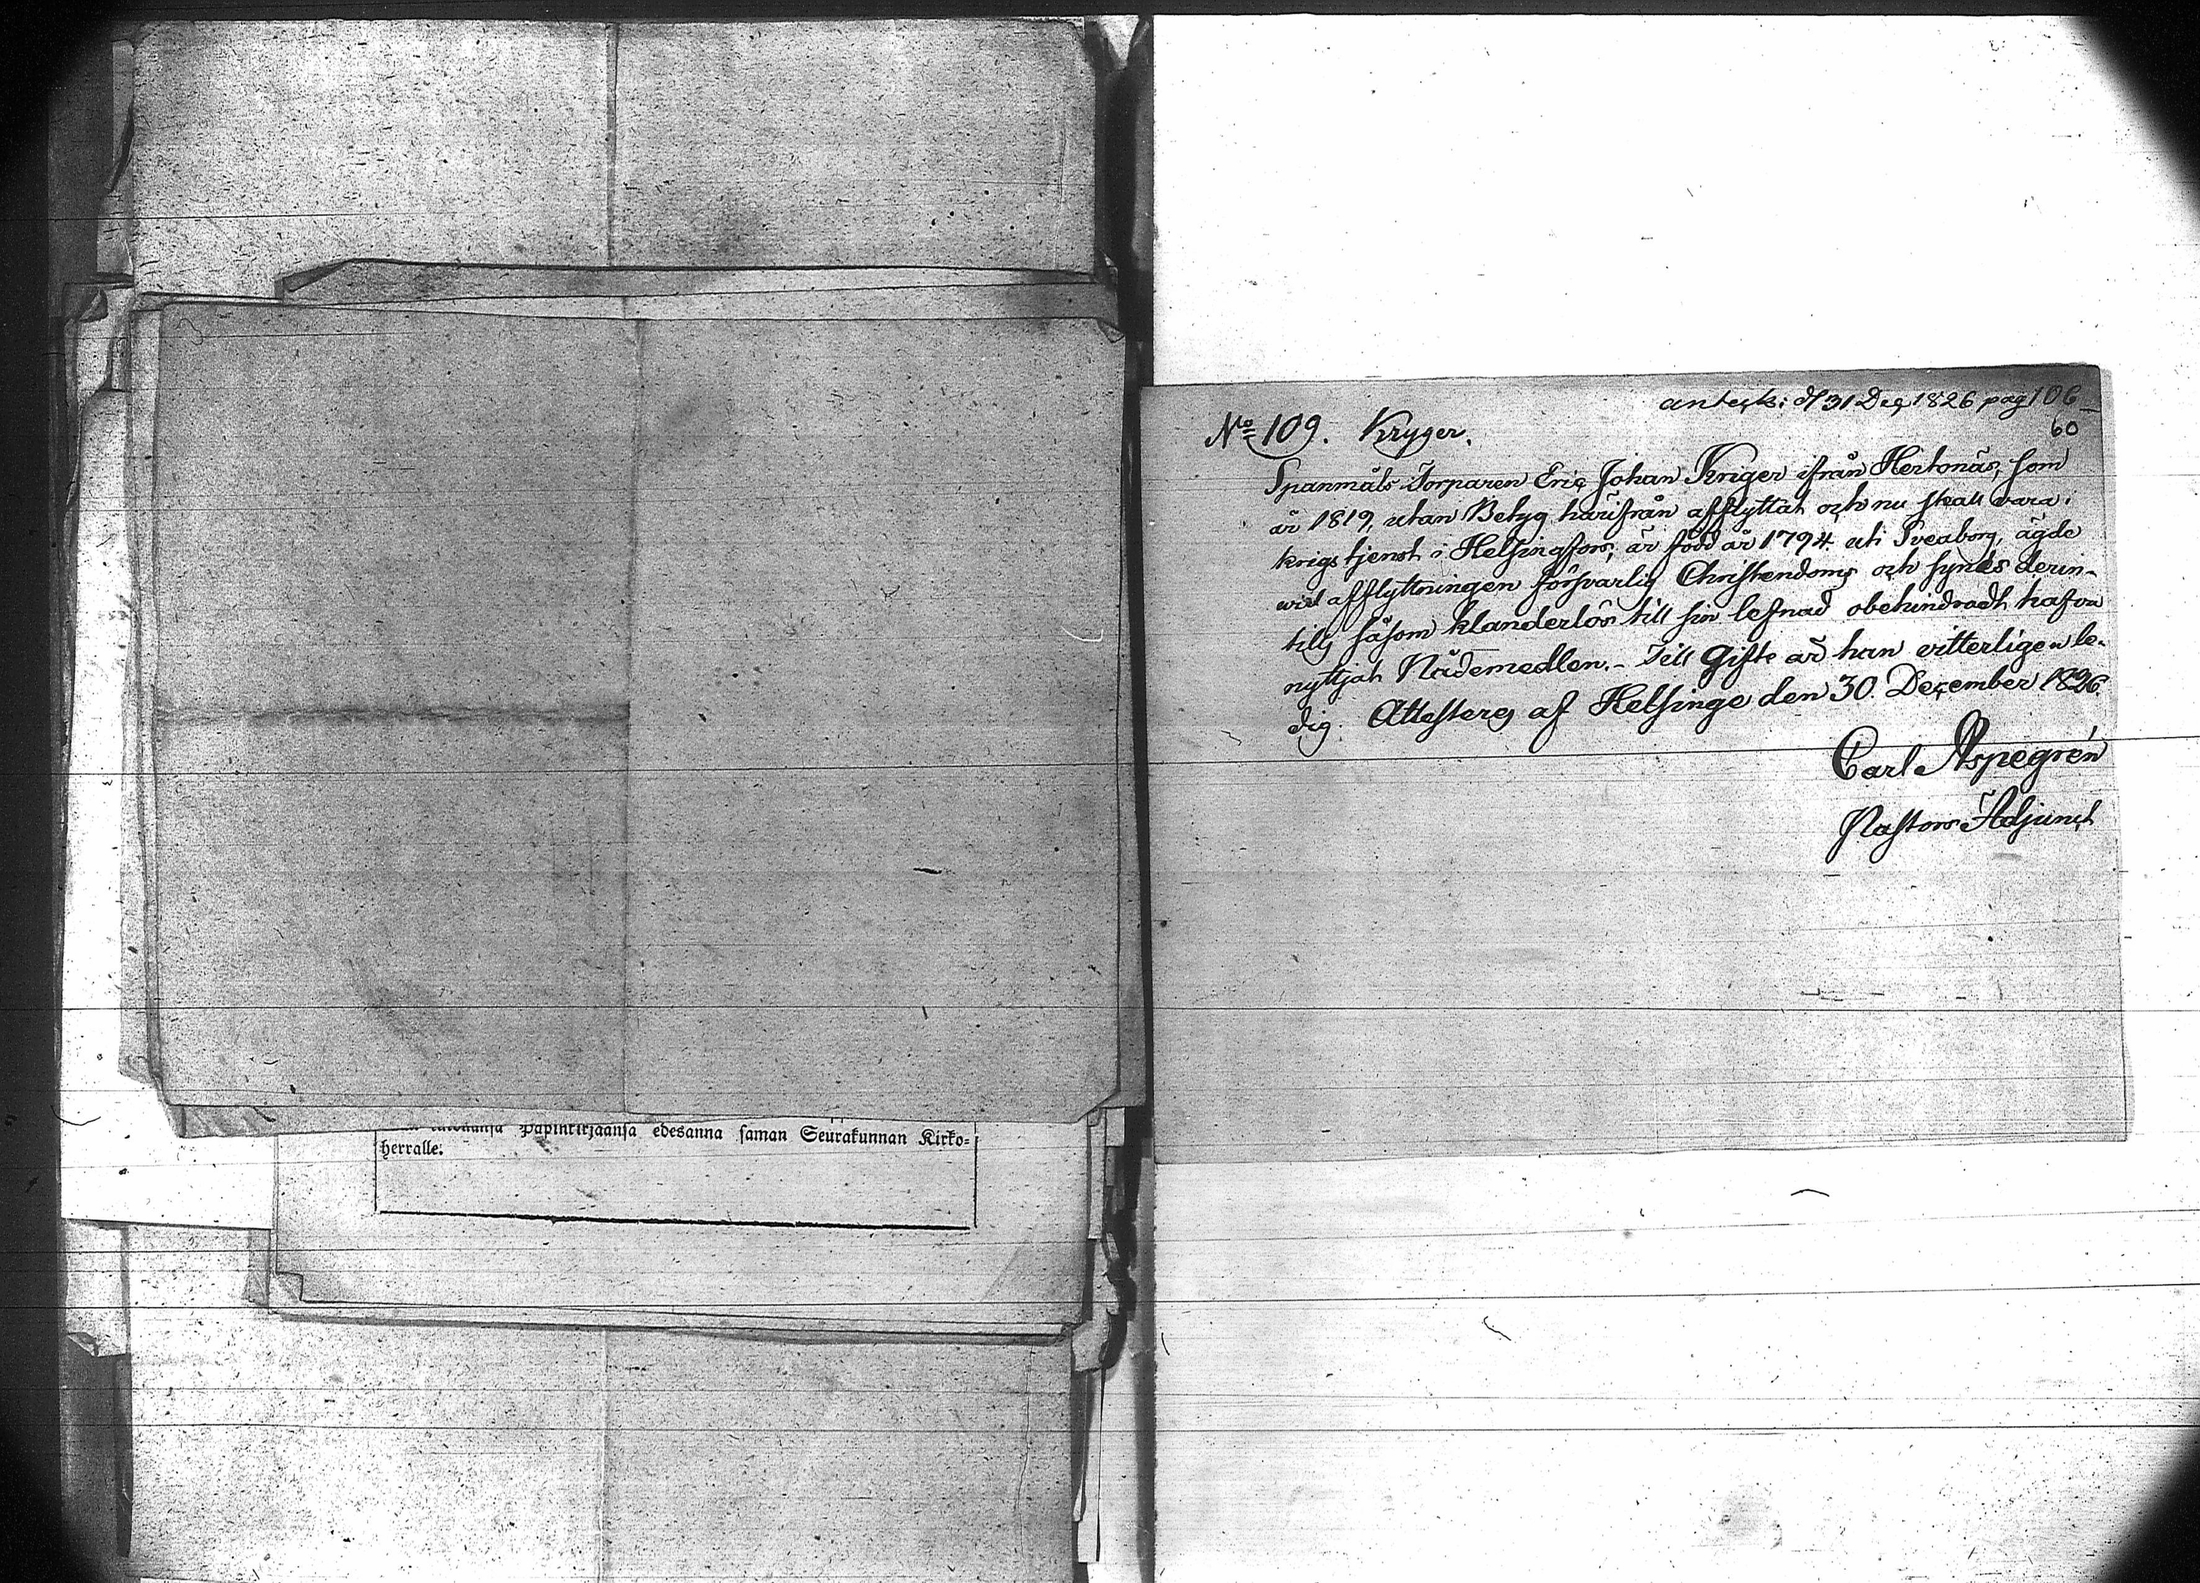 Papinkirjaansa edesanna saman Seurakunnan Kirko-
herralle.
anteck: d 31 Dec 1826 pag 106
60
No 109. Kryger.
Spanmåls Torparen Eric Johan Kriger ifrån Hertonäs, som
år 1819, utan Betyg härifrån afflyttat och nu skall vara i
krigstjenst i Helsingfors, är född år 1794 uti Sveaborg, ägde
wid afflyttningen försvarlig Christendoms och synes derin-
till, såsom klanderlös till sin lefnad obehindradt hafva
nyttjat Nådemedlen. - Till Gifte är han vitterligen le-
dig. Attesteras af Helsinge den 30 December 1826.
Carl Aspegrén
Pastors Adjunct